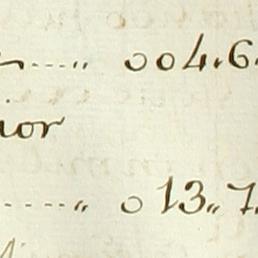 ..... „ 004.6.
ior
..... „ 013„7.